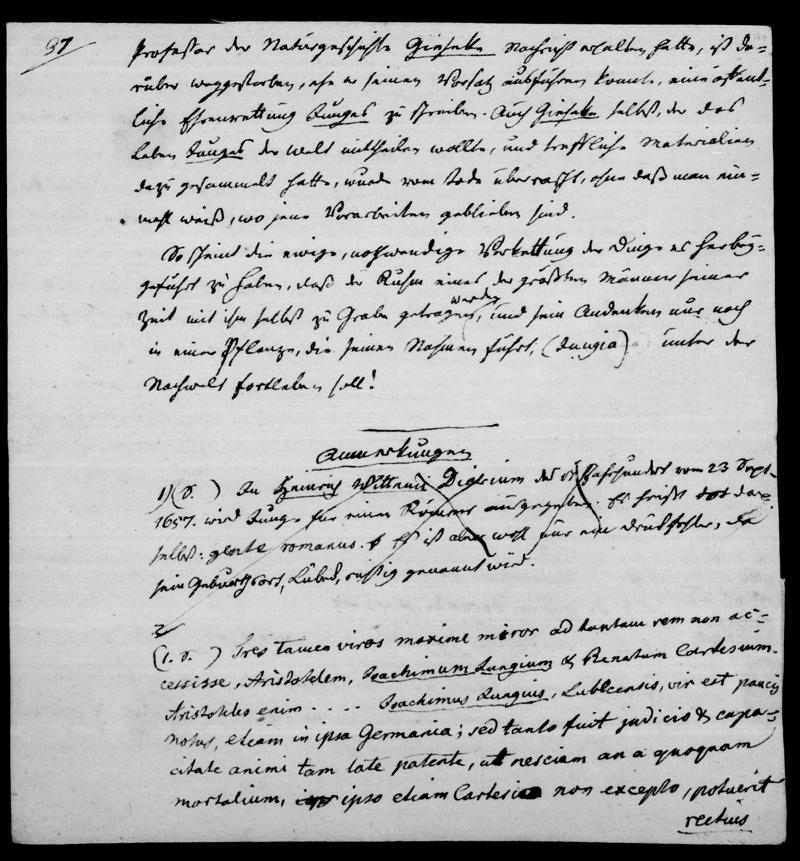 37
Professor der Naturgeschichte Gieseke Nachricht erhalten hatte, ist da=
rüber weggestorben, ehe er seinen Vorsatz ausführen konnte, eine öffent=
liche Ehrenrettung Junges zu schreiben. Auch Gieseke selbst, der das
Leben Junges der Welt mittheilen wollte, und treffliche Materialien
dazu gesammelt hatte, wurde vom Tode überrascht, ohne daß man ein=
mahl weiß, wo jene Vorarbeiten geblieben sind.
So scheint die ewige, nothwendige Verkettung der Dinge es herbey=
geführt zu haben, daß der Ruhm eines der größten Männer seiner
Zeit mit ihm selbst zu Grabe getragen werde, und sein Andenken nur noch
in einer Pflanze, die seinen Nahmen führt, (Jungia) unter der
Nachwelt fortleben soll!
Anmerkungen
1) (S. ) In Heinrich Wittens Diarium des Jahrhundert vom 23 Sept.
1657. wird Junge für einen Römer ausgegeben. Es heißt da=
selbst: gente romanus. Es ist aber wohl nur ein Druckfehler, da
sein Geburthsort, Lübeck, richtig genannt wird.
2
(1. S. ) Tres tamen viros maxime miror ad tantam rem non ac=
cessisse, Aristotelem, Joachimum Jungium & Renatum Cartesium.
Aristoteles enim .... Joachimus Jungius, Lubecensis, vir est paucis
notus, etiam in ipsa Germania; sed tanto fuit judicio & capa=
citate animi tam late patente, ut nesciam an a quoquam
mortalium, ipso etiam Cartesio non excepto, potuerit
rectius